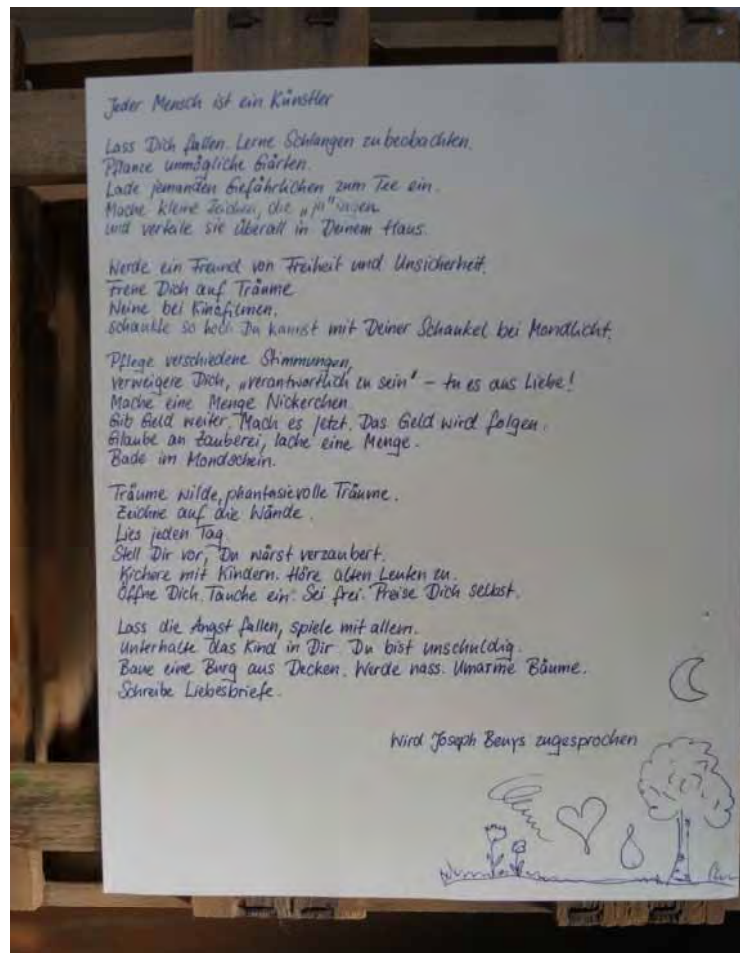 Jeder Mensch ist ein Künstler
Lass Dich fallen. Lerne Schlangen zu beobachten.
Pflanze unmögliche Gärten.
Lade jemanden Gefährlichen zum Tee ein.
Mache kleine Zeichen, die „ja" sagen
und verteile sie überall in Deinem Haus.
Werde ein Freund von Freiheit und Unsicherheit.
Freue Dich auf Träume.
Weine bei Kinofilmen.
schaukle so hoch Du kannst mit Deiner Schaukel bei Mondlicht.
Pflege verschiedene Stimmungen,
verweigere Dich, „verantwortlich zu sein" – tu es aus Liebe!
Mache eine Menge Nickerchen.
Gib Geld weiter. Mach es jetzt. Das Geld wird folgen.
Glaube an Zauberei, lache eine Menge.
Bade im Mondschein.
Träume wilde, phantasievolle Träume.
Zeichne auf die Wände.
Lies jeden Tag.
Stell Dir vor, Du wärst verzaubert.
Kichere mit Kindern. Höre alten Leuten zu.
Öffne Dich. Tauche ein. Sei frei. Preise Dich selbst.
Lass die Angst fallen, spiele mit allem.
Unterhalte das Kind in Dir. Du bist unschuldig.
Baue eine Burg aus Decken. Werde nass. Umarme Bäume.
Schreibe Liebesbriefe.
Wird Joseph Beuys zugesprochen